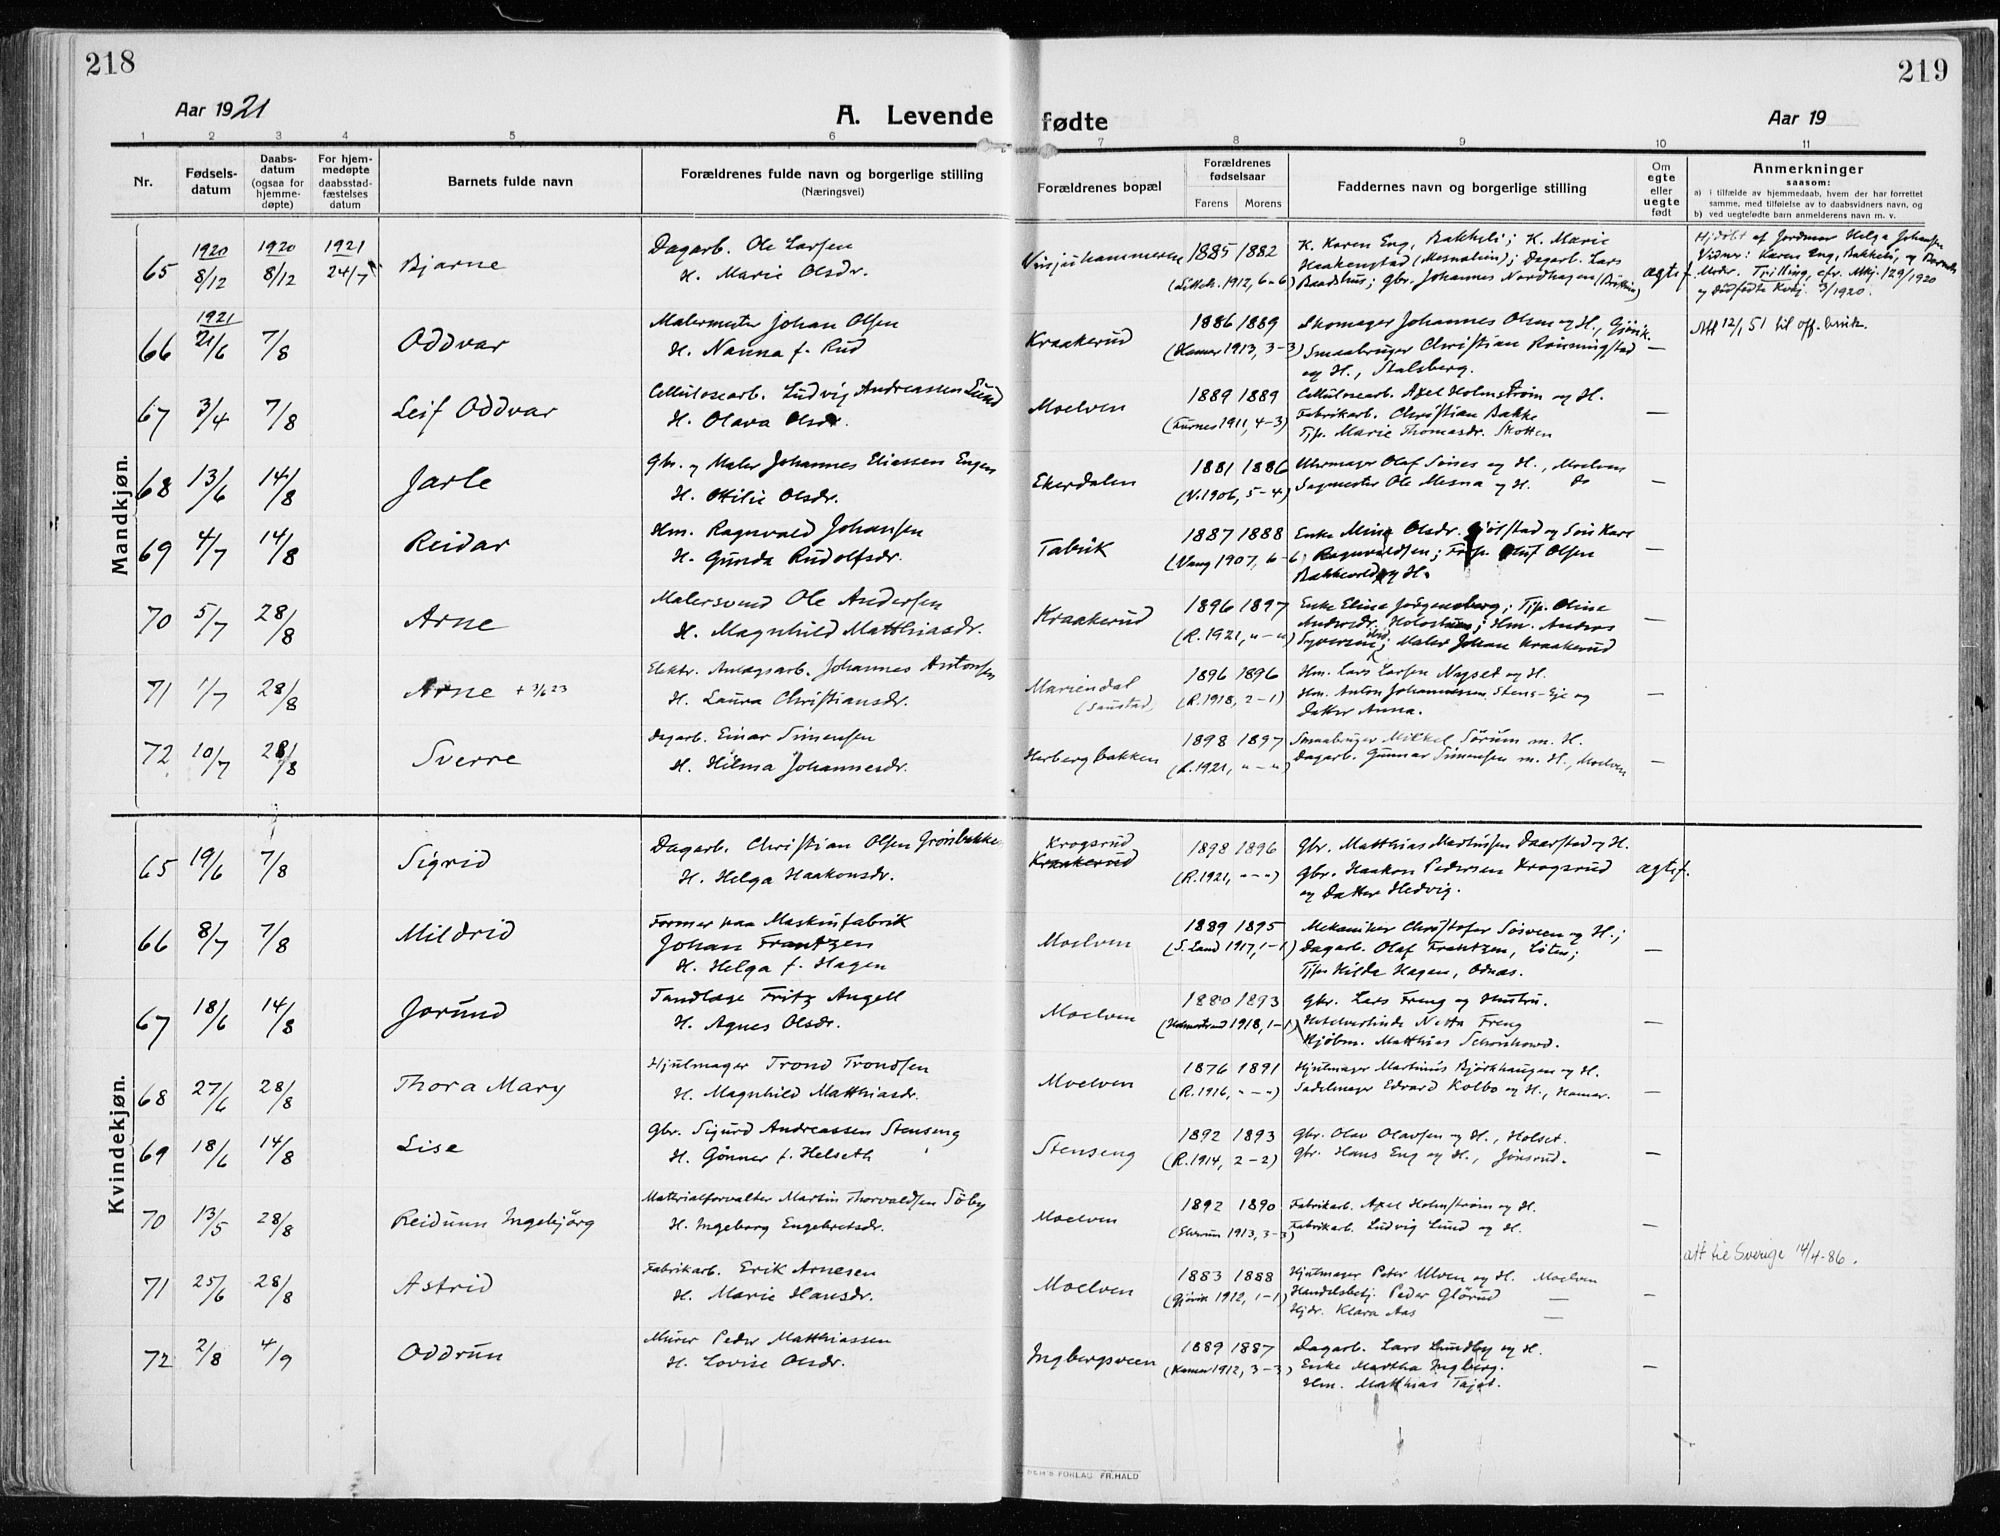 218
219
Aar 1921
A. Levende fødte
Aar 19
1 2 3 4 5 6 7 8 9 10 11
Nr.
Fødsels-
datum
Daabs-
datum
(ogsaa for
hjemme-
døpte)
For hjem-
medøpte
daabsstad-
fæstelses
datum
Barnets fulde navn
Forældrenes fulde navn og borgerlige stilling
(Næringsvei)
Forældrenes bopæl
Forældrenes
fødselsaar
Farens Morens
Faddernes navn og borgerlige stilling
Om
egte
eller
uegte
født
Anmerkninger
saasom:
a) i tilfælde av hjemmedaab, hvem der har forrettet
samme, med tilføielse av to daabsvidners navn, og
b) ved uegtefødte barn anmelderens navn m. v.
Mandkjøn.
65 1920 8/12 1920 8/12 1921 24/7 Bjarne
Dagarb. Ole Larsen
H. Marie Olsdr.
1885 1882
(1912, 6-6)
K. Karen Eng, Bakkeli; K. Marie
Haakenstad (Mesnalien); Dagarb. Lars
Baadshus; Gbr. Johannes Nordhagen
ægtef.
Hjdøbt af Jordmor Helga Johansen
Vidner: Karen Eng, Bakkeli, og Barnets
Moder. Trilling, cfr. Mkj. 129/1920
og dødfødte Kvkj. 3/1920.
66 1921 21/6 7/8 Oddvar
Malermester Johan Olsen
H. Nanna f. Rud
Kraakerud
1886 1889
(Hamar 1913, 3-3)
Skomager Johannes Olsen og H., Gjøvik.
Smaabruger Christian
og H., Stalsberg.
—
Att 12/1 51 til off. bruk.
67 3/4 7/8 Leif Oddvar
Cellulosearb. Ludvig Andreassen Lund
H. Olava Olsdr.
Moelven
1889 1889
(Furnes 1911, 4-3)
Cellulosearb. Axel Holmstrøm og H.
Fabrikarb. Christian Bakke
Tjp. Marie Thomasdr. Skotten
—
68 13/6 14/8 Jarle
Gbr. og Maler Johannes Eliassen Engen
H. Ottilie Olsdr.
Ekerdalen
1881 1886
(V. 1906, 5-4)
Uhrmager Olaf og H., Moelven
Sagmester Ole Mesna og H. Do
—
69 4/7 14/8 Reidar
Hm. Ragnvald Johansen
H. Gunda Rudolfsdr.
1887 1888
(Vang 1907, 6-6)
Enke Mina Olsdr. og Søn Karl
Ragnvaldsen; Olsen
og H.
—
70 5/7 28/8 Arne
Malersvend Ole Andersen
H. Magnhild Matthiasdr.
Kraakerud
1896 1897
(R. 1921, „-„)
Enke Elise Jørgensberg; Tjp. Oline
Andersdr. Holoshus; Hm. Anders
Maler Johan Kraakerud
—
71 1/7 28/8 Arne + 3/6 23
Elektr. Anlægsarb. Johannes Antonsen
H. Laura Christiansdr.
Mariendal
1896 1896
(R. 1918, 2-1)
Hm. Lars Larsen Nyset og H.
Hm. Anton Johannessen Stens-Eje og
Datter Anna.
—
72 10/7 28/8 Sverre
Dagarb. Einar Simensen
H. Hilma Johannesdr.
Herbergbakken
1898 1897
(R. 1921, „-„)
Smaabruger Mikkel Sørum m. H.
Dagarb. Gunnar Simensen m. H., Moelven
—
Kvindekjøn.
65 19/6 7/8 Sigrid
Dagarb. Christian Olsen Grønbakken
H. Helga Haakonsdr.
Krogsrud
Kraakerud
1898 1896
(R. 1921, „-„)
Gbr. Matthias Mathisen Daarstad og H.
Gbr. Haakon Pedersen Krogsrud
og Datter Hedvig.
ægtef.
66 8/7 7/8 Mildrid
Former paa Maskinfabrik
Johan Frantzen
H. Helga f. Hagen
Moelven
1889 1895
(S. Land 1917, 1-1)
Mekaniker Christofer Sørveen og H.;
Dagarb. Olaf Frantzen, Løten;
Tjp. Hilda Hagen, Odnæs.
—
67 18/6 14/8 Jorund
Tandlæge Fritz Angell
H. Agnes Olsdr.
Moelven
1880 1893
(Holmestrand 1918, 1-1)
Gbr. Lars Freng og Hustru.
Hotelvertinde Netta Freng
Kjøbm. Matthias Schønhowd.
—
68 27/6 28/8 Thora Mary
Hjulmager Trond Trondsen
H. Magnhild Matthiasdr.
Moelven
1876 1891
(R. 1916, „-„)
Hjulmager Martinus Bjørkhaugen og H.
Sadelmager Edvard Kolbo og H., Hamar.
—
69 18/6 14/8 Lise
Gbr. Sigurd Andreassen Stenseng
H. Gønner f. Helseth
Stenseng
1892 1893
(R. 1914, 2-2)
Gbr. Olav Olavsen og H., Holset.
Gbr. Hans Eng og H., Jønsrud.
—
70 13/5 28/8 Reidunn Ingebjørg
Materialforvalter Martin Thorvaldsen Söby
H. Ingeborg Engebretsdr.
Moelven
1892 1890
(Elverum 1913, 3-3)
Fabrikarb. Axel Holmstrøm og H.
Fabrikarb. Ludvig Lund og H.
—
att til Sverige 14/4-86.
71 25/6 28/8 Astrid
Fabrikarb. Erik Arnesen
H. Marie Hansdr.
Moelven
1883 1888
(Gjøvik 1912, 1-1)
Hjulmager Peter Ulven og H. Moelven
Handelsbetj. Peder Glørud —
Hjdr. Klara Aas —
—
72 2/8 4/9 Oddrun
Murer Peder Matthiassen
H. Lovise Olsdr.
Ingbergsveen
1889 1887
(Hamar 1912, 3-3)
Dagarb. Lars Lundby og H.
Enke Martha Ingberg.
Hm. Matthias Tajet.
—
FORLAG FR. HALD